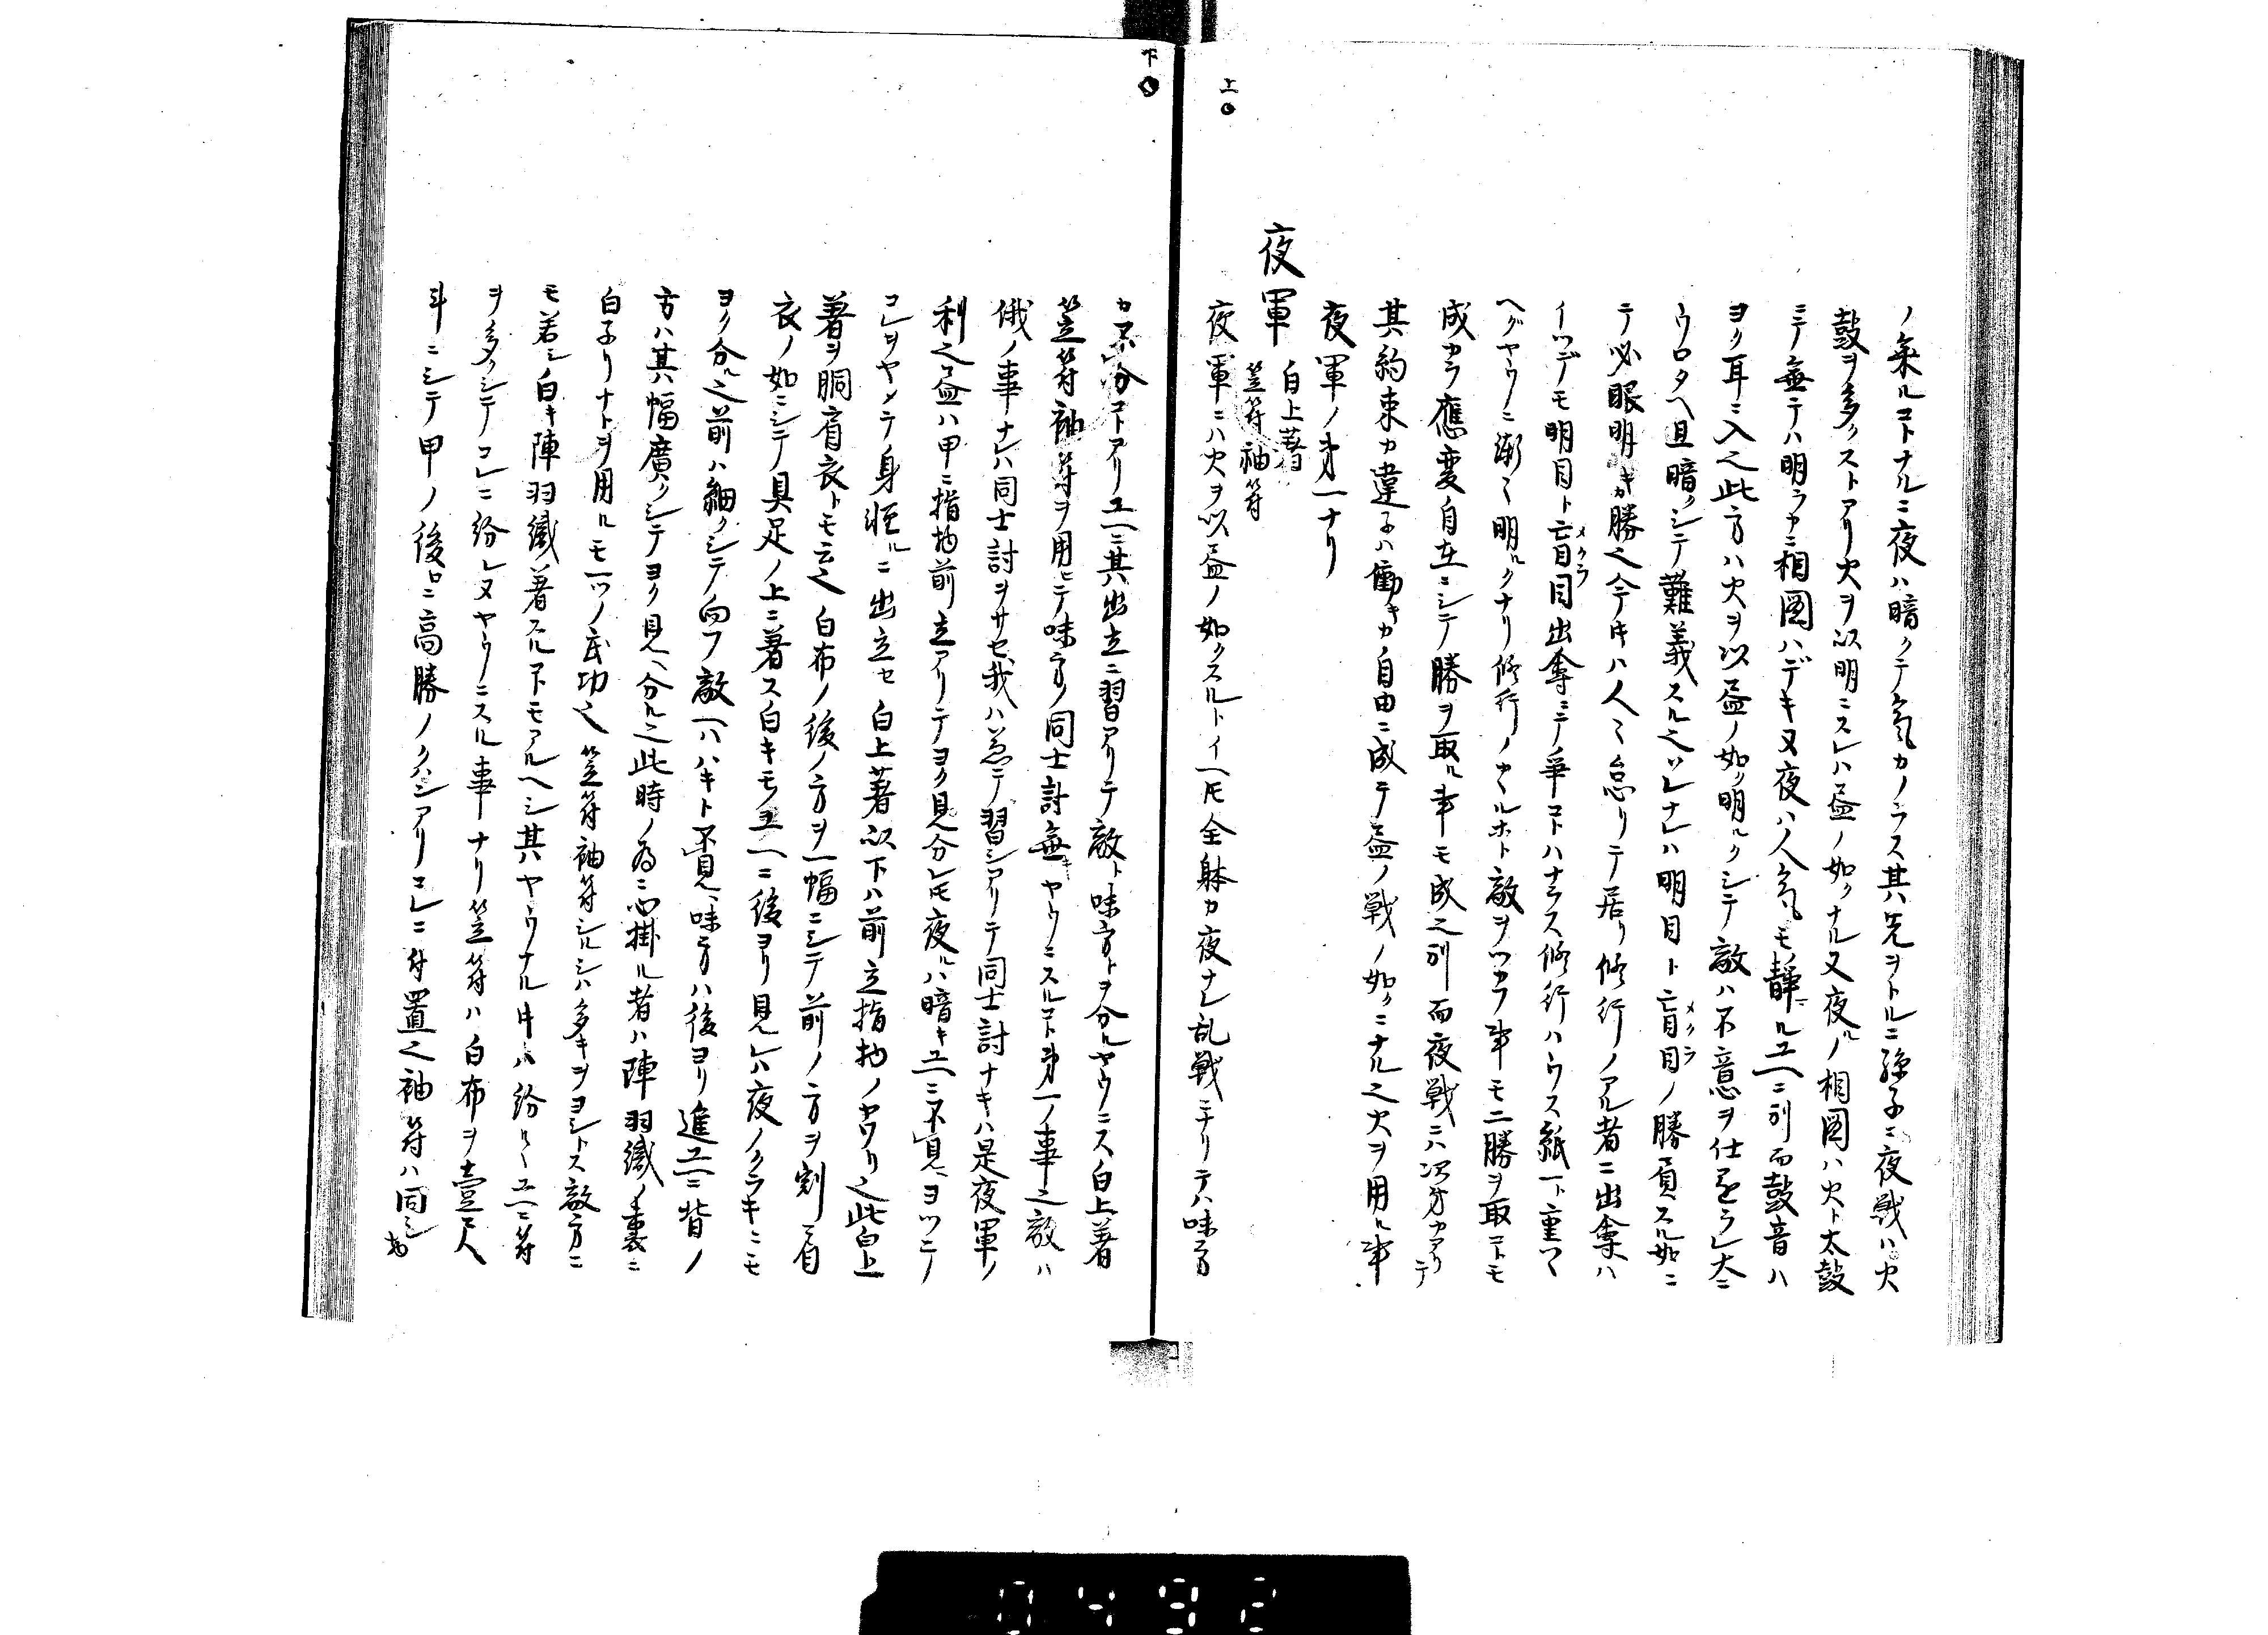 上
ノ乗ルコトナルニ夜ハ暗クテ気カノラス其先ヲトルニ孫子ニ夜戦ハ火
鼓ヲ多クストアリ火ヲ以明ニスレハ昼ノ如クナル又夜ルノ相図ハ火ト太鼓
ニテ無テハ明ラカニ相図ハデキヌ夜ハ人気モ静ニルユヘニ別而鼓音ハ
ヨク耳ニ入之此方ハ火ヲ以昼ノ如ク明ルクシテ敵ハ不意ヲ仕懸ラレ大ニ
ウロタヘ且暗クシテ難義スル之ソレナレハ明目ト盲目メクラノ勝負スル如ニ
テ必眼明キカ勝之今時ハ人々怠リテ居リ修行ノアル者ニ出会ハ
イツデモ明目ト盲目メクラ出奪ニテ争コトハナラス修行ハウス紙一ト重ツヽ
ヘグヤウニ漸々明ルクナリ修行ノ タルホト敵ヲツカフ事モ二勝ヲ取コトモ
成カラ応変自在ニシテ勝ヲ取ル事モ成之別而夜戦ニハ次第カアリテ
其約束カ違子ハ働キカ自由ニ成テ昼ノ戦ノ如クニナル之火ヲ用ル事
夜軍ノ第一ナリ
夜軍 白上著 笠符袖符
夜軍ニハ火ヲ以昼ノ如クスルトイヘ𪜈全躰カ夜ナレ乱戦ニナリテハ味方
下
カ不分コトアリユヘニ其出立ニ習アリテ敵ト味方トヲ分ルヤウニス白上著
笠符袖符ヲ用ヒテ味方ノ同士討無キヤウニスルコト第一ノ事之敵ハ
俄ノ事ナレハ同士討ヲサセ我ハ兼テ習シアリテ同士討ナキハ是夜軍ノ
利之昼ハ甲ニ指物前立アリテヨク見分レ𪜈夜ルハ暗キユヘニ不見ヨツテ
コレヲヤメテ身軽ルニ出立セ白上著以下ハ前立指物ノカワリ之此白上
著ヲ胴肩衣トモ云之白布ノ後ノ方ヲ一幅ニシテ前ノ方ヲ割肩
衣ノ如ニシテ具足ノ上ニ著ス白キモノユヘニ後ヨリ見レハ夜ノクラキニモ
ヨク分ル之前ハ細クシテ向フ敵ヘハハキト不見味方ハ後ヨリ進ユヘニ背ノ
方ハ其幅廣クシテヨク見ヘ分ル之此時ノ為ニ心掛ル者ハ陣羽織ノ裏ニ
白子リナトヲ用ルモ一ツノ武功之笠符袖符シルシハ多キヲヨシトス敵方ニ
モ若シ白キ陣羽織著スルコトモアルヘシ其ヤウナル時ハ紛ルヽユヘニ符
ヲ多クシテコレニ紛レヌヤウニスル事ナリ笠符ハ白布ヲ壹尺
斗ニシテ甲ノ後ロニ高勝ノクハンアリコレニ付置之袖符ハ同シ布
0492